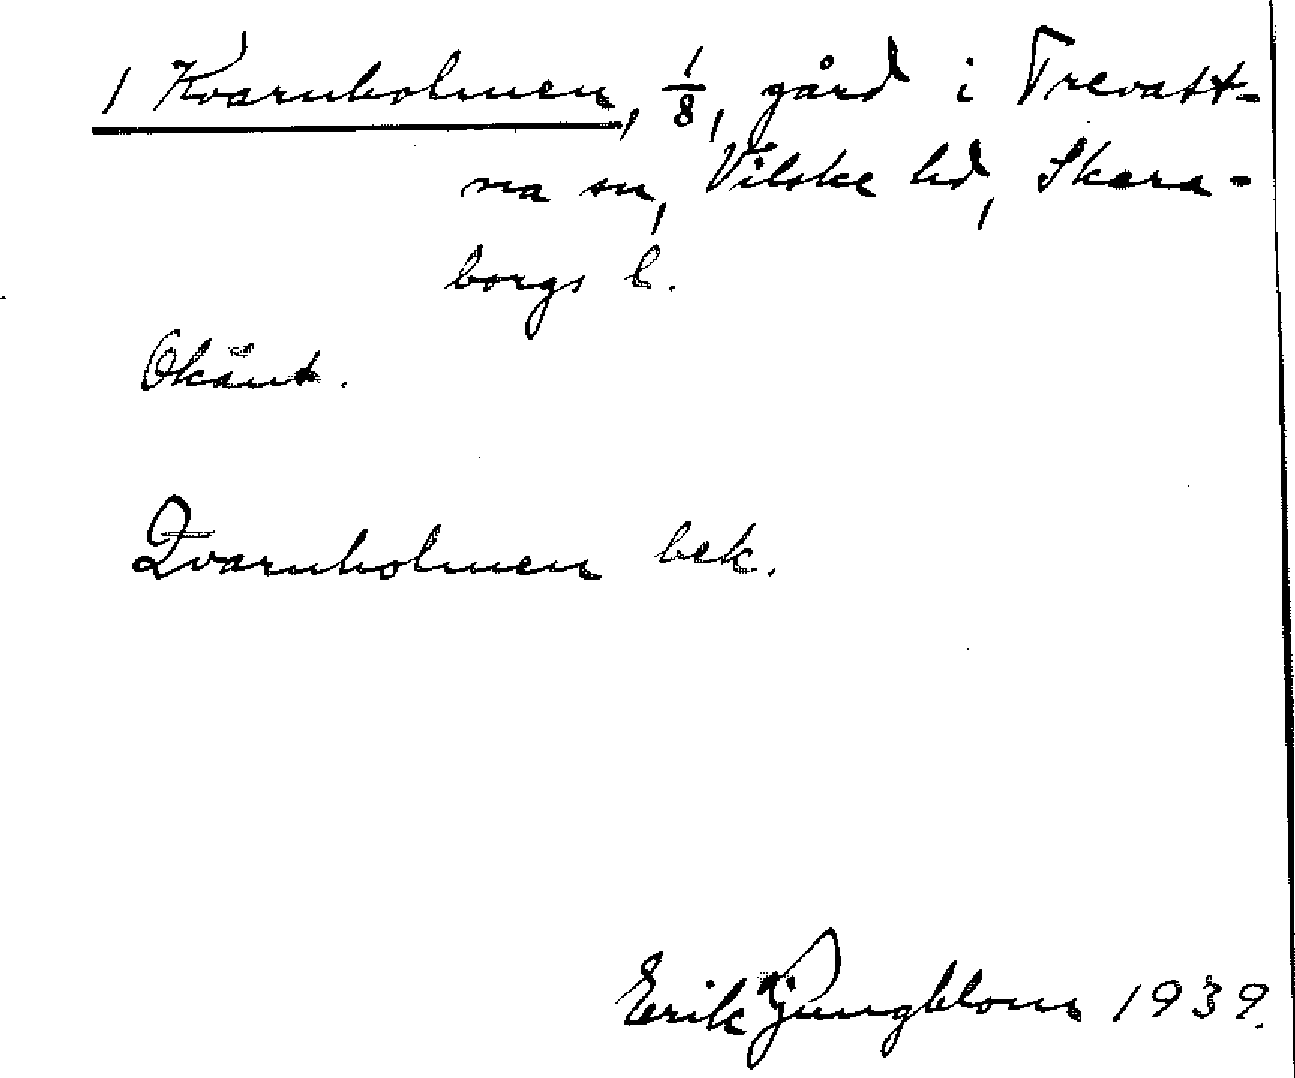 1 Kvarnholmen, 1/8, gård i Trevatt-
na sn, Vilske hd, Skara-
borgs l.
Okänt.
Qvarnholmen bek.
Erik Ljungblom 1939.